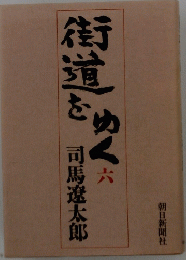 街道をゆく
六
司馬遼太郎
朝日新聞社